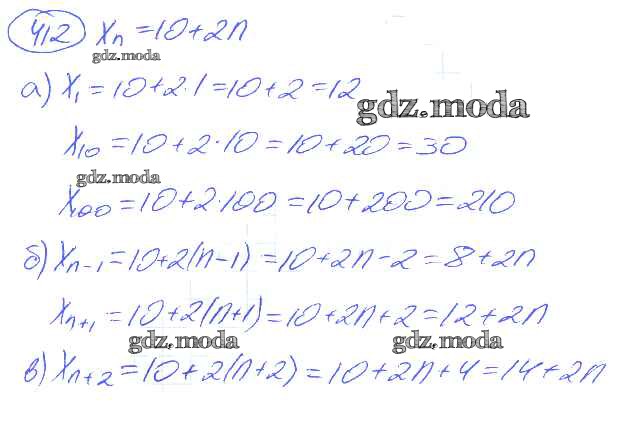 412 Xₙ = 10 + 2n
gdz.moda
а) X₁ = 10 + 2·1 = 10 + 2 = 12
gdz.moda
X₁₀ = 10 + 2·10 = 10 + 20 = 30
gdz.moda
X₁₀₀ = 10 + 2·100 = 10 + 200 = 210
б) Xₙ₋₁ = 10 + 2(n-1) = 10 + 2n - 2 = 8 + 2n
Xₙ₊₁ = 10 + 2(n+1) = 10 + 2n + 2 = 12 + 2n
gdz.moda gdz.moda
в) Xₙ₊₂ = 10 + 2(n+2) = 10 + 2n + 4 = 14 + 2n